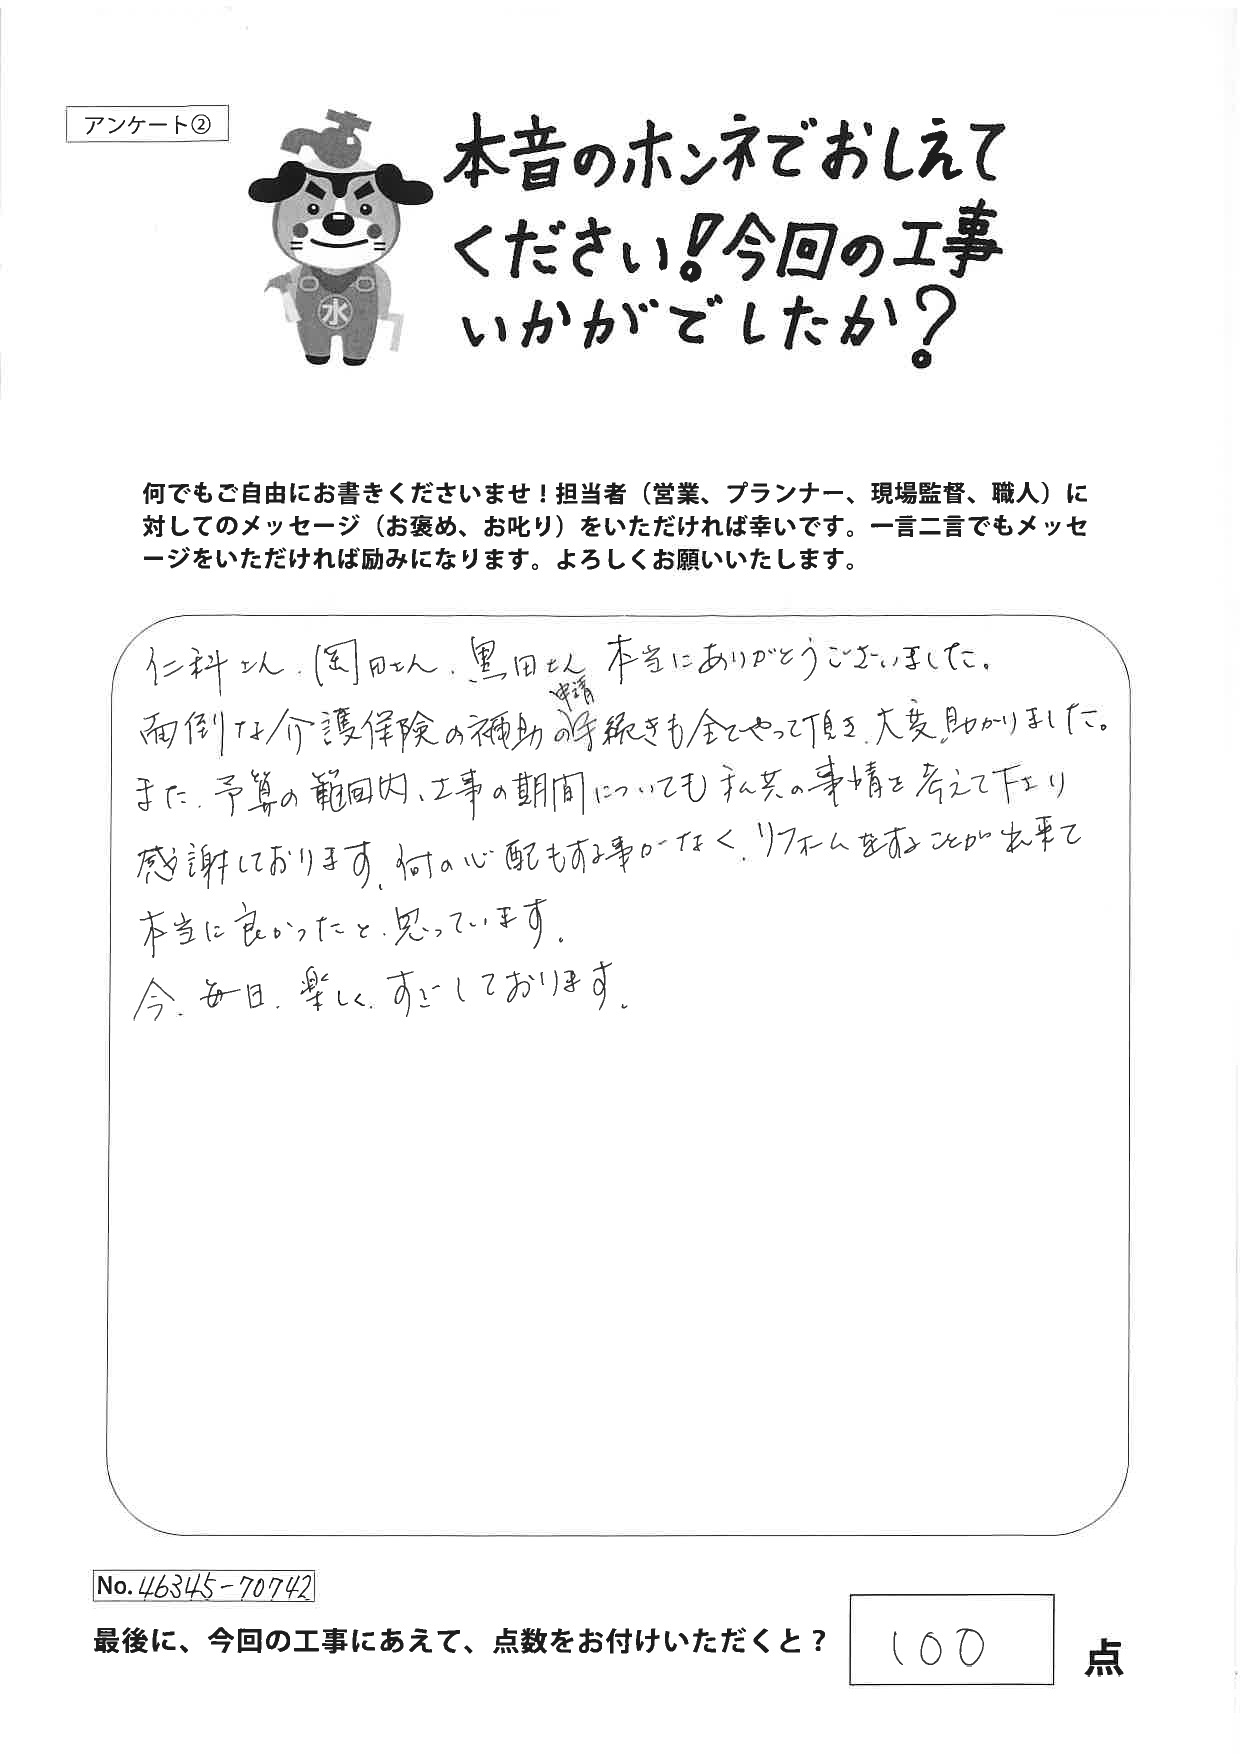 アンケート②
本音のホンネでおしえて
ください!今回の工事
いかがでしたか?
水
何でもご自由にお書きくださいませ!担当者(営業、プランナー、現場監督、職人)に
対してのメッセージ(お褒め、お叱り)をいただければ幸いです。一言二言でもメッセ
ージをいただければ励みになります。よろしくお願いいたします。
仁科さん、岡田さん、黒田さん 本当にありがとうございました。
申請
面倒な介護保険の補助の手続きも全てやって頂き、大変助かりました。
また、予算の範囲内、工事の期間についても私共の事情を考えて下さり
感謝しております。何の心配もする事がなく、リフォームをすることが出来て
本当に良かったと、思っています。
今、毎日、楽しく、すごしております。
No.46345-70742
最後に、今回の工事にあえて、点数をお付けいただくと?
100
点